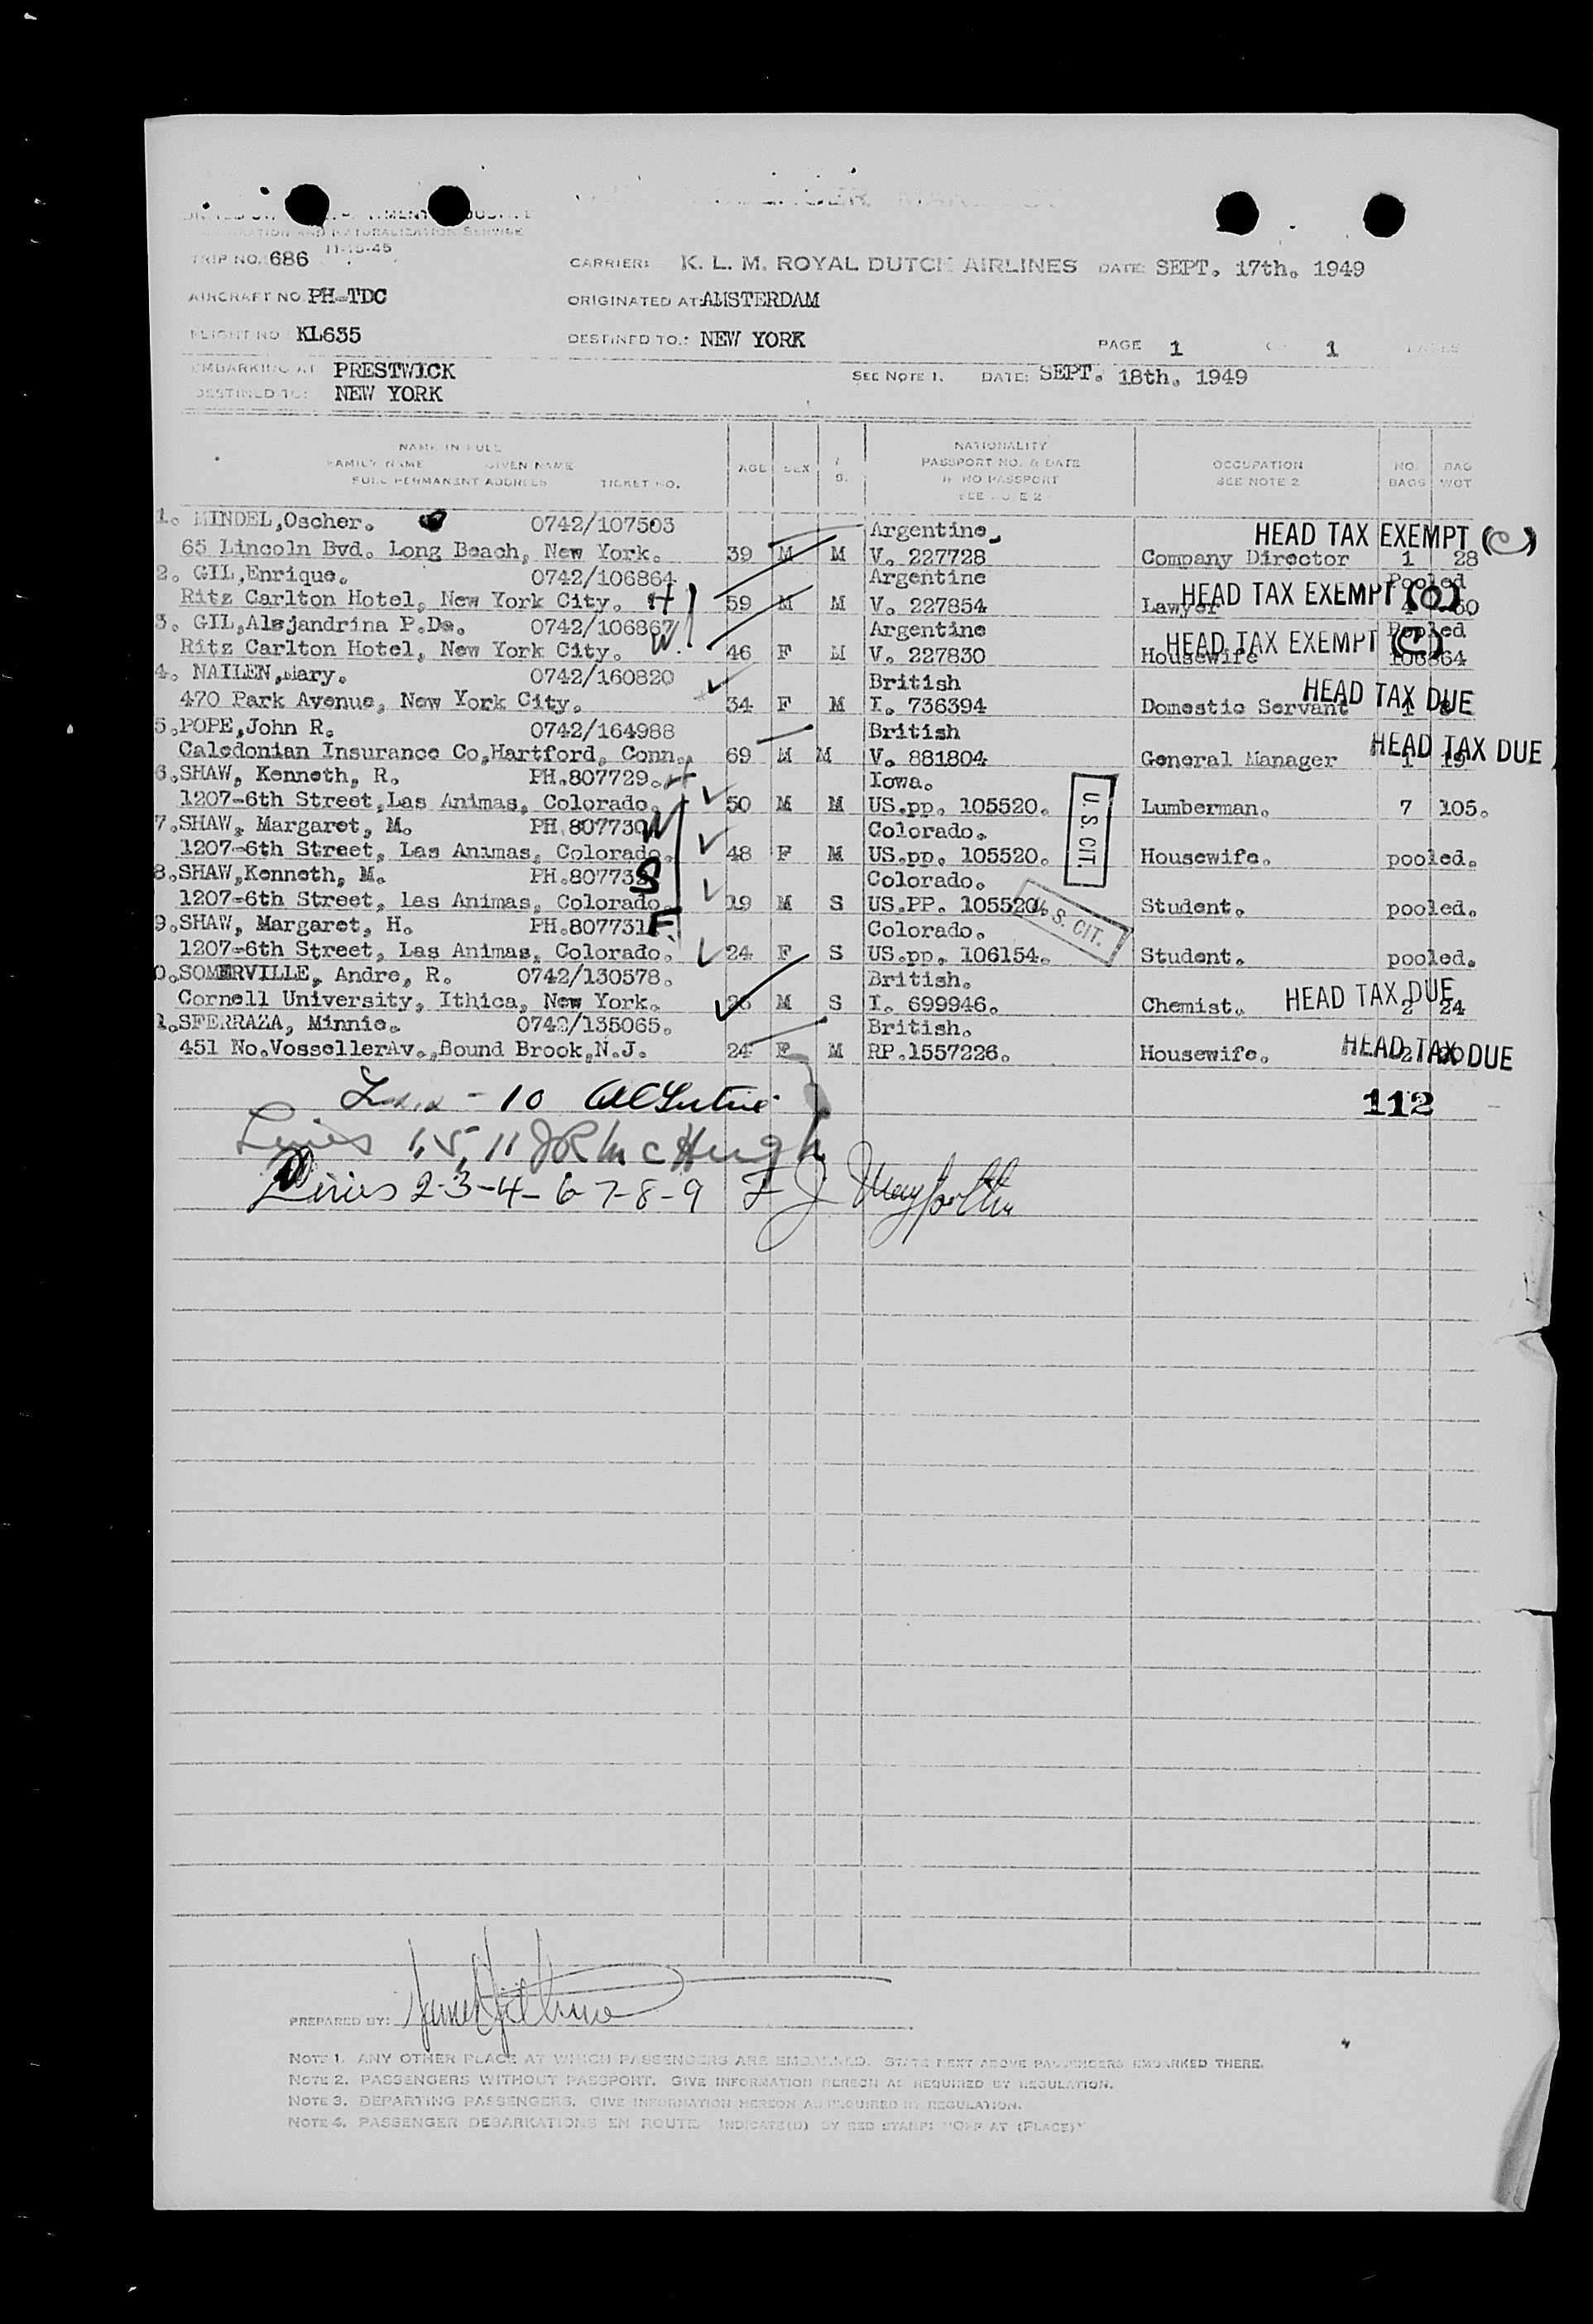 IMMIGRATION AND NATURALIZATION SERVICE
11-15-45
TRIP NO. 686
CARRIER: K. L. M. ROYAL DUTCH AIRLINES DATE: SEPT. 17th. 1949
AIRCRAFT NO. PH-TDC
ORIGINATED AT: AMSTERDAM
FLIGHT NO KL635
DESTINED TO.: NEW YORK
PAGE 1 1
EMBARKING AT PRESTWICK
SEE NOTE 1. DATE: SEPT. 18th. 1949
DESTINED TO: NEW YORK
NAME IN FULL
FAMILY NAME GIVEN NAME
FULL PERMANENT ADDRESS TICKET NO.
AGE SEX S.
NATIONALITY
PASSPORT NO. & DATE
IF NO PASSPORT
SEE NOTE 2
OCCUPATION
SEE NOTE 2
NO. BAGS
BAG WGT
1. MINDEL,Oscher. 0742/107503 Argentine. HEAD TAX EXEMPT (C)
65 Lincoln Bvd. Long Beach, New York. 39 M M V. 227728 Company Director 1 28
2. GIL,Enrique. 0742/106864 Argentine Pooled
Ritz Carlton Hotel, New York City. H 59 M M V. 227854 Lawyer HEAD TAX EXEMPT
3. GIL,Alejandrina P.De. 0742/106867 Argentine Pooled
Ritz Carlton Hotel, New York City. W. 46 F M V. 227830 Housewife HEAD TAX EXEMPT (C) 106864
4. NAILEN,Mary. 0742/160820 British HEAD TAX DUE
470 Park Avenue, New York City. 34 F M I. 736394 Domestic Servant 1
5.POPE,John R. 0742/164988 British HEAD TAX DUE
Caledonian Insurance Co,Hartford, Conn. 69 M M V. 881804 General Manager 1
6.SHAW, Kenneth, R. PH.807729. H Iowa.
1207-6th Street,Las Animas, Colorado. 50 M M US.pp. 105520. U.S. CIT. Lumberman. 7 105.
7.SHAW, Margaret, M. PH.807730 W Colorado.
1207-6th Street, Las Animas, Colorado. 48 F M US.pp. 105520. Housewife. pooled.
8.SHAW,Kenneth, M. PH.80773 S Colorado.
1207-6th Street, las Animas, Colorado. 19 M S US.PP. 105520. U.S. CIT. Student. pooled.
9.SHAW, Margaret, H. PH.807731 F Colorado.
1207-6th Street, Las Animas, Colorado. 24 F S US.pp. 106154. Student. pooled.
0.SOMERVILLE, Andre, R. 0742/130578. British. HEAD TAX DUE
Cornell University, Ithica, New York. 26 M S I. 699946. Chemist. 2 24
1.SFERRAZA, Minnie. 0742/135065. British. HEAD TAX DUE
451 No.VossellerAv.,Bound Brook,N.J. 24 F M RP.1557226. Housewife. 2
- 10
112
Lines 1, 5, 11 J R McHugh
Lines 2-3-4-6-7-8-9 F J
PREPARED BY:
NOTE 1. ANY OTHER PLACE AT WHICH PASSENGERS ARE EMBARKED. STATE NEXT ABOVE PASSENGERS EMBARKED THERE.
NOTE 2. PASSENGERS WITHOUT PASSPORT. GIVE INFORMATION HEREON AS REQUIRED BY REGULATION.
NOTE 3. DEPARTING PASSENGERS. GIVE INFORMATION HEREON AS REQUIRED BY REGULATION.
NOTE 4. PASSENGER DEBARKATIONS EN ROUTE INDICATE(D) BY RED STAMP: "OFF AT (PLACE)"